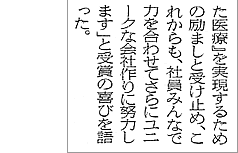 た医療』を実現するため
の励ましと受け止め、こ
れからも、社員みんなで
力を合わせてさらにユニ
ークな会社作りに努力し
ます」と受賞の喜びを語
った。